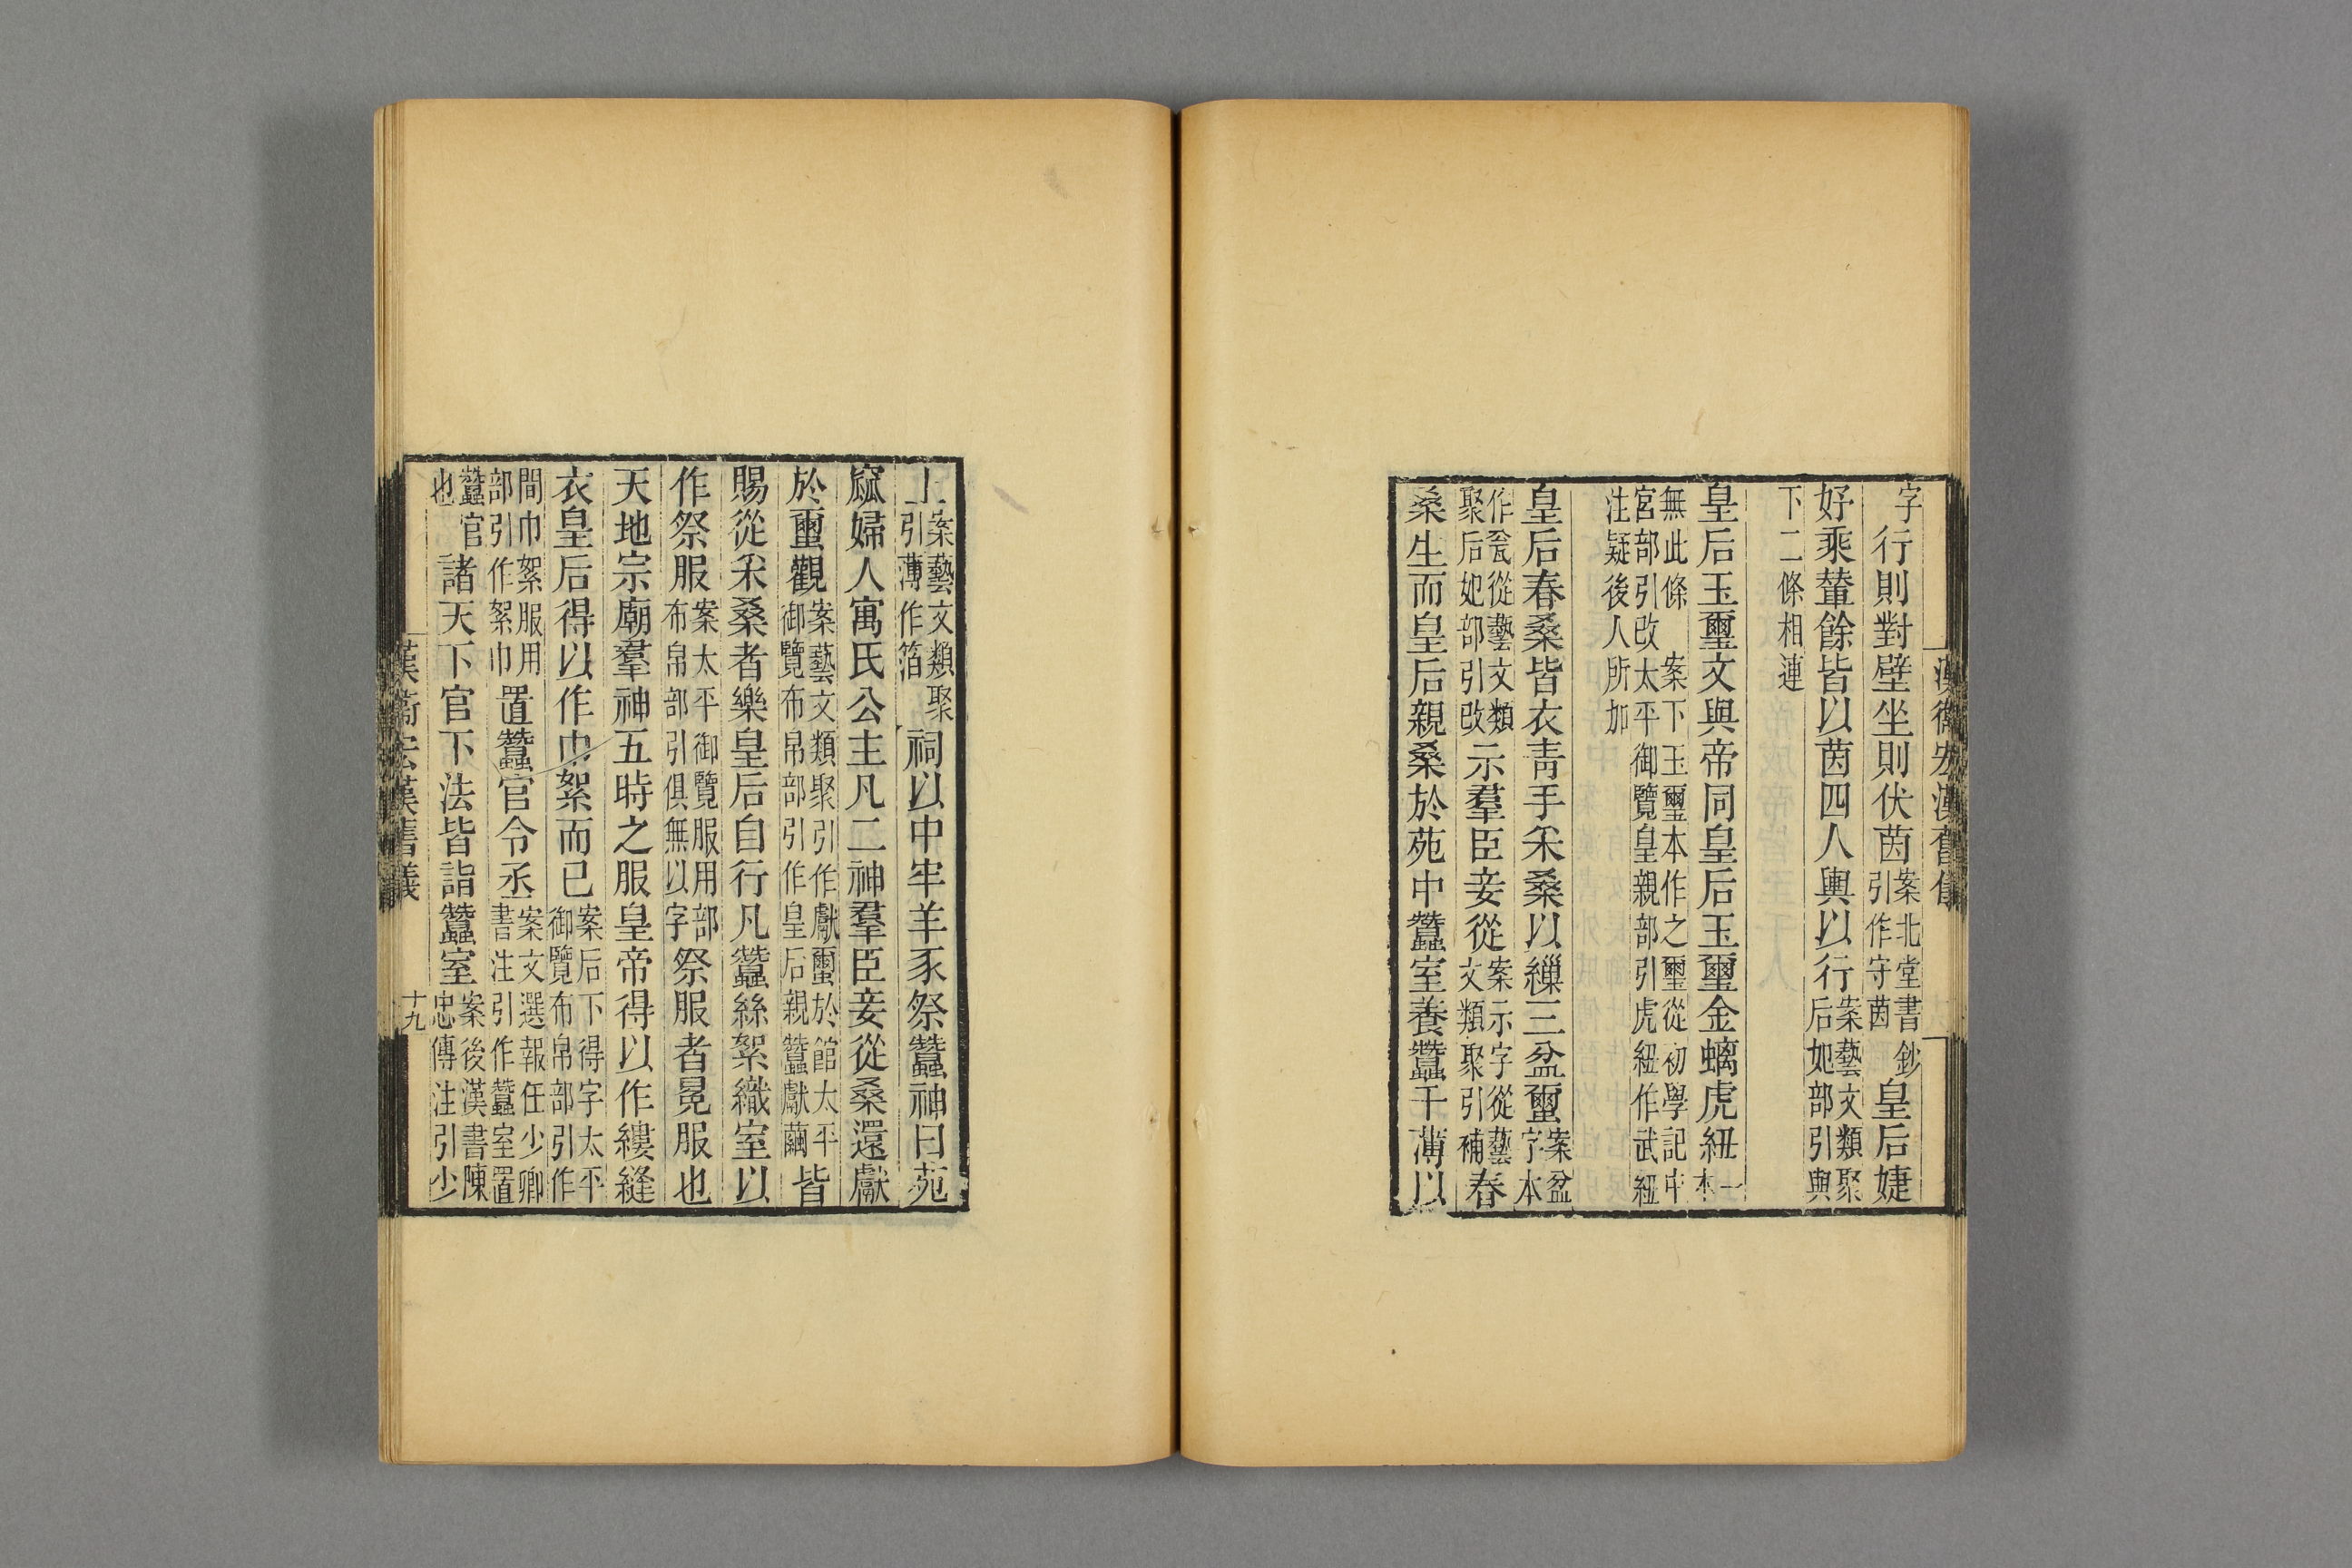 漢衛宏漢舊儀
字行則對壁坐則伏茵案北堂書鈔引作守茵皇后婕
好乘輦餘皆以茵四人輿以行案藝文類聚后妃部引與
下二條相連
皇后玉璽文與帝同皇后玉璽金螭虎紐一本
無此條 案下玉璽本作之璽從初學記中宮部引改太平御覽皇親部引虎紐作武紐
注疑後人所加
皇后春桑皆衣青手采桑以繅三盆𧖅案盆字本
作瓮從藝文類聚后妃部引改示羣臣妾從案示字從藝文類聚引補春
桑生而皇后親桑於苑中蠶室養蠶千薄以
上案藝文類聚引薄作箔祠以中牢羊豕祭蠶神曰苑
窳婦人寓氏公主凡二神羣臣妾從桑還獻
於𧖅觀案藝文類聚引作獻𧖅於館太平御覽布帛部引作皇后親蠶獻繭皆
賜從采桑者樂皇后自行凡蠶絲絮織室以
作祭服案太平御覽服用部布帛部引俱無以字祭服者冕服也
天地宗廟羣神五時之服皇帝得以作縷縫
衣皇后得以作巾絮而已案后下得字太平御覽布帛部引作
間巾絮服用部引作絮巾置蠶官令丞案文選報任少卿書注引作蠶室置
蠶官也諸天下官下法皆詣蠶室案後漢書陳忠傳注引少
漢衛宏漢舊儀
十九